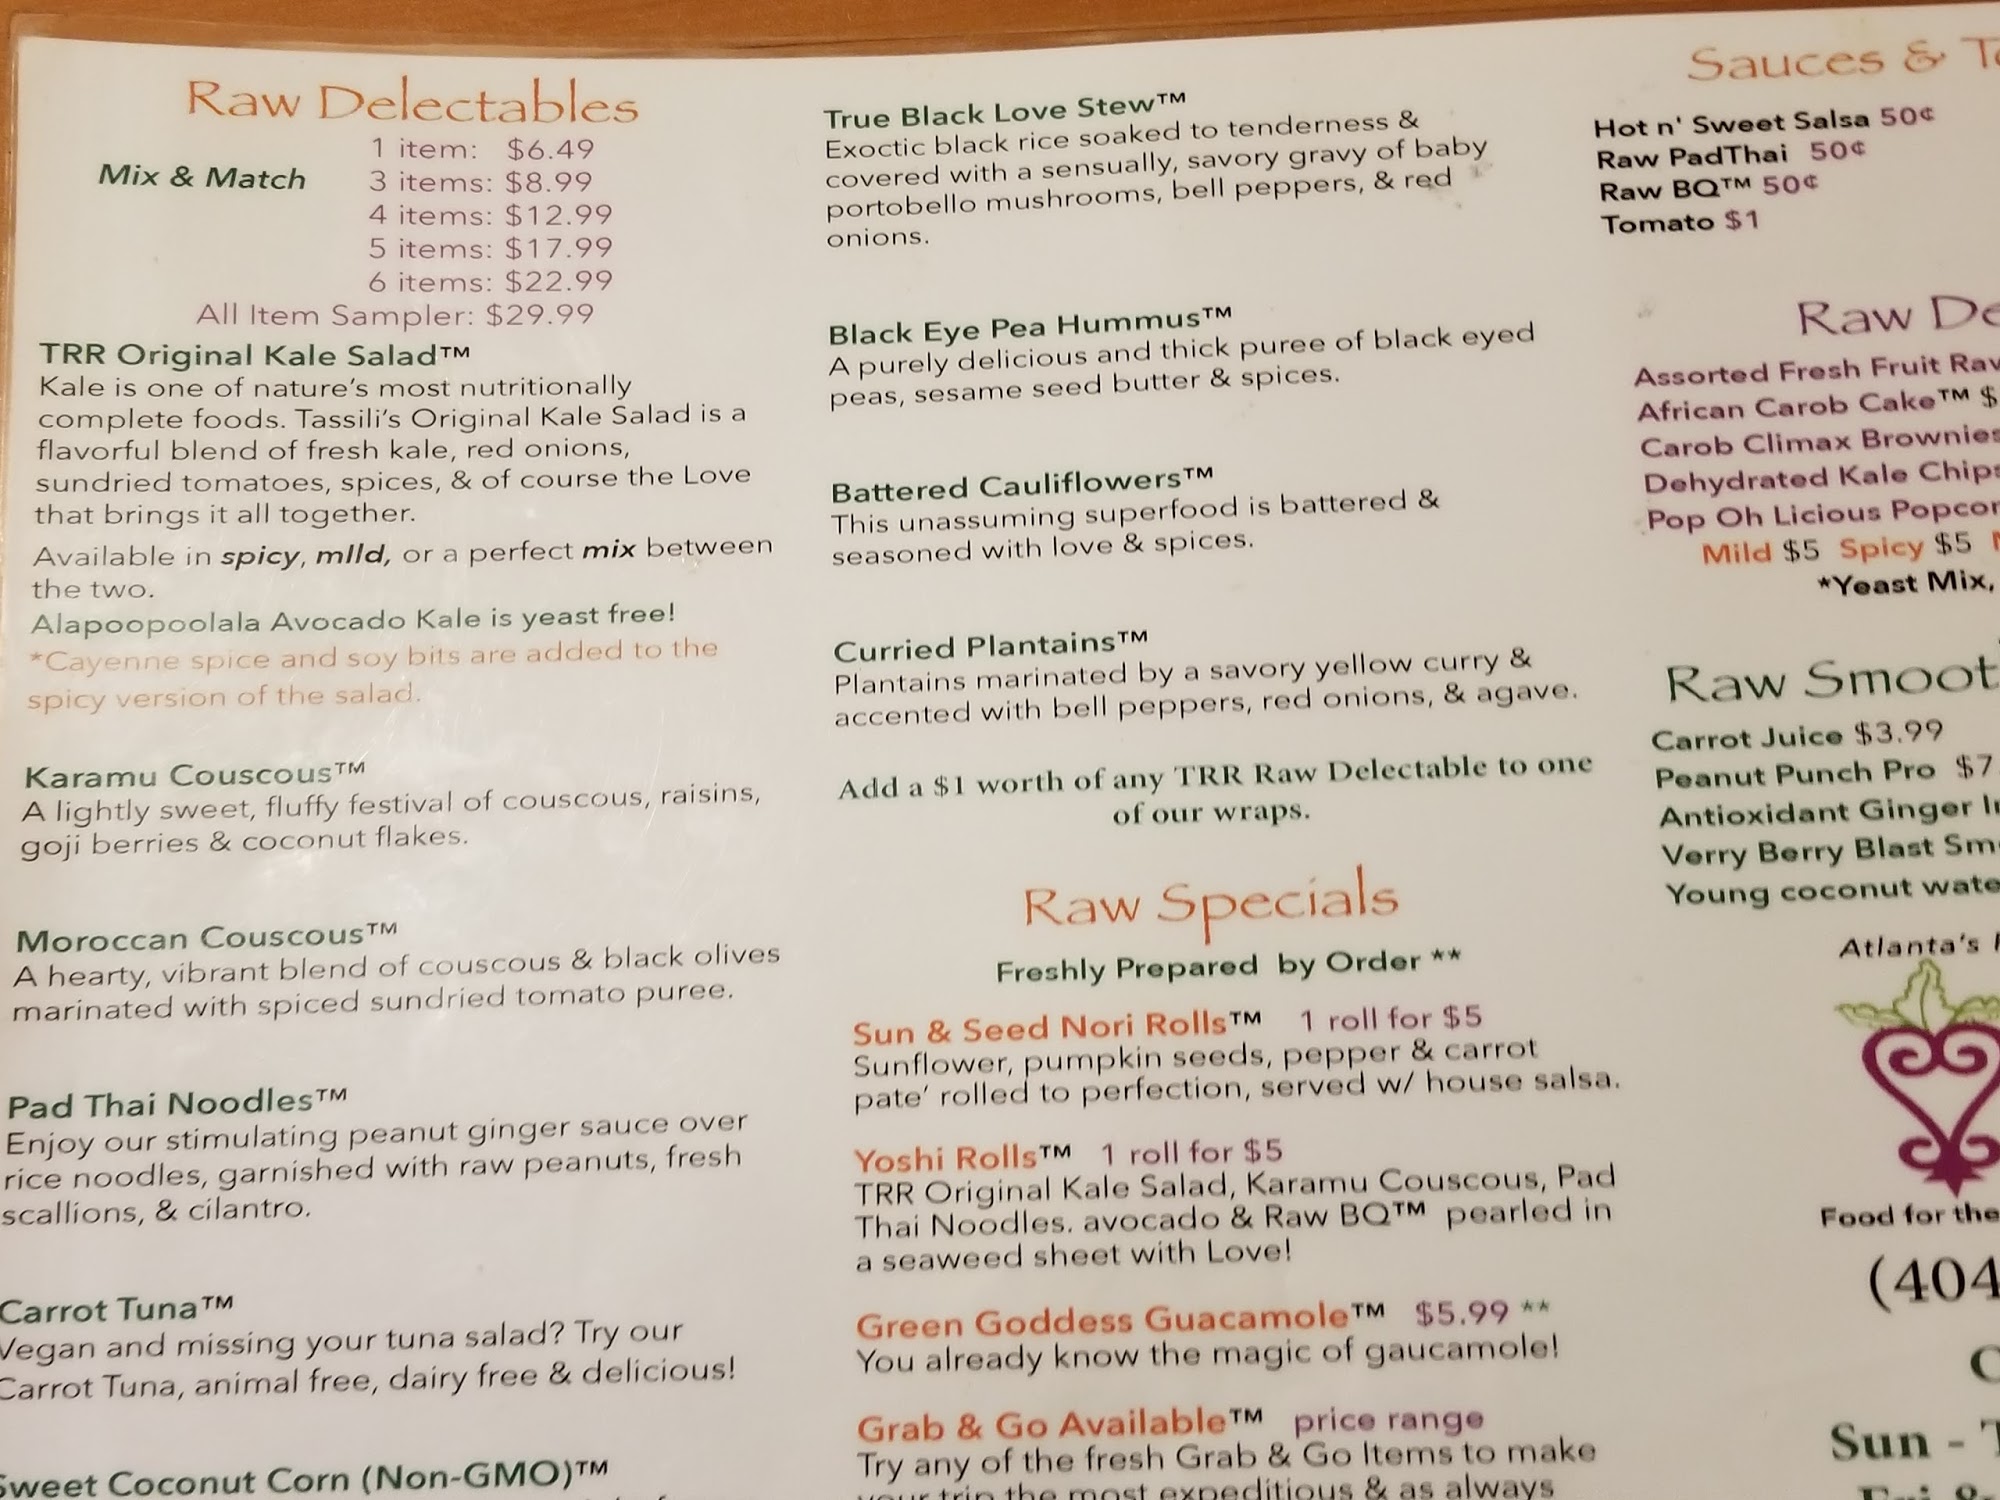 Raw Delectables
Mix & Match
1 item: $6.49
3 items: $8.99
4 items: $12.99
5 items: $17.99
6 items: $22.99
All Item Sampler: $29.99
TRR Original Kale Salad™
Kale is one of nature's most nutritionally
complete foods. Tassili's Original Kale Salad is a
flavorful blend of fresh kale, red onions,
sundried tomatoes, spices, & of course the Love
that brings it all together.
Available in spicy, mIld, or a perfect mix between
the two.
Alapoopoolala Avocado Kale is yeast free!
*Cayenne spice and soy bits are added to the
spicy version of the salad.
Karamu Couscous™
A lightly sweet, fluffy festival of couscous, raisins,
goji berries & coconut flakes.
Moroccan Couscous™
A hearty, vibrant blend of couscous & black olives
marinated with spiced sundried tomato puree.
Pad Thai Noodles™
Enjoy our stimulating peanut ginger sauce over
rice noodles, garnished with raw peanuts, fresh
scallions, & cilantro.
Carrot Tuna™
Vegan and missing your tuna salad? Try our
Carrot Tuna, animal free, dairy free & delicious!
Sweet Coconut Corn (Non-GMO)™
True Black Love Stew™
Exoctic black rice soaked to tenderness &
covered with a sensually, savory gravy of baby
portobello mushrooms, bell peppers, & red
onions.
Black Eye Pea Hummus™
A purely delicious and thick puree of black eyed
peas, sesame seed butter & spices.
Battered Cauliflowers™
This unassuming superfood is battered &
seasoned with love & spices.
Curried Plantains™
Plantains marinated by a savory yellow curry &
accented with bell peppers, red onions, & agave.
Add a $1 worth of any TRR Raw Delectable to one
of our wraps.
Raw Specials
Freshly Prepared by Order **
Sun & Seed Nori Rolls™ 1 roll for $5
Sunflower, pumpkin seeds, pepper & carrot
pate' rolled to perfection, served w/ house salsa.
Yoshi Rolls™ 1 roll for $5
TRR Original Kale Salad, Karamu Couscous, Pad
Thai Noodles. avocado & Raw BQ™ pearled in
a seaweed sheet with Love!
Green Goddess Guacamole™ $5.99 **
You already know the magic of gaucamole!
Grab & Go Available™ price range
Try any of the fresh Grab & Go Items to make
your trip the most expeditious & as always
Sauces &
Hot n' Sweet Salsa 50¢
Raw PadThai 50¢
Raw BQ™ 50¢
Tomato $1
Raw De
Assorted Fresh Fruit Rav
African Carob Cake™ $
Carob Climax Brownies
Dehydrated Kale Chips
Pop Oh Licious Popcor
Mild $5 Spicy $5
*Yeast Mix,
Raw Smoot
Carrot Juice $3.99
Peanut Punch Pro $7.
Antioxidant Ginger
Verry Berry Blast Sm
Young coconut wate
Atlanta's
Food for the
(404
Sun -
Fri &